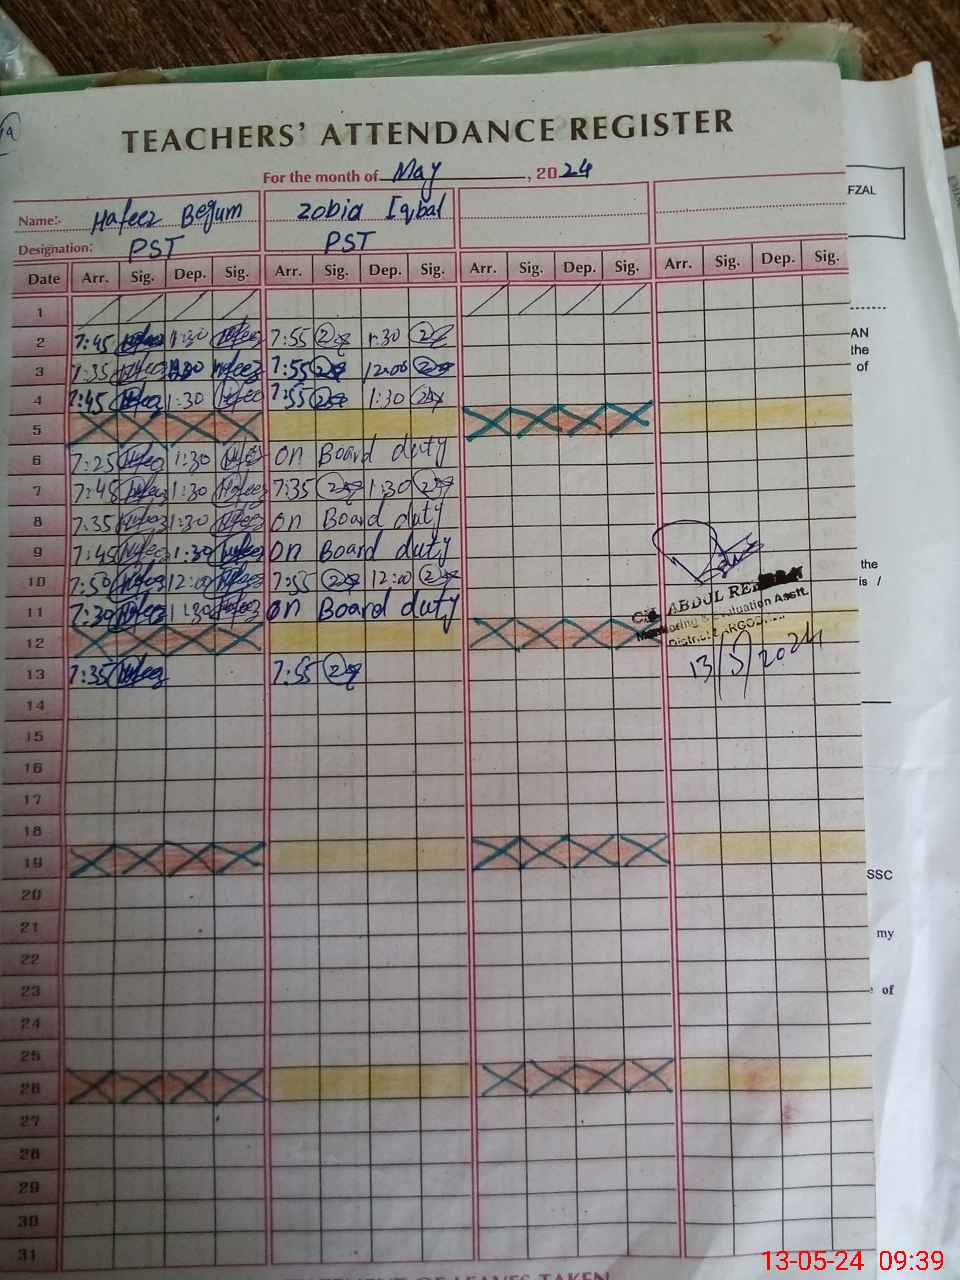 TEACHERS' ATTENDANCE REGISTER
For the month of May, 2024
Name:- Hafeez Begum Zobia Iqbal
Designation: PST PST
Date Arr. Sig. Dep. Sig. Arr. Sig. Dep. Sig. Arr. Sig. Dep. Sig. Arr. Sig. Dep. Sig.
1
2 7:45 1:30 7:55 1:30
3 7:35 1:30 Hafeez 7:55 12:00
4 7:45 1:30 7:55 1:30
5
6 7:25 1:30 on Board duty
7 7:45 1:30 Hafeez 7:35 1:30
8 7:35 1:30 on Board duty
9 7:45 1:30 on Board duty
10 7:50 12:00 7:55 12:00
11 7:30 1:30 on Board duty
12
13 7:35 7:55
14
15
16
17
18
19
20
21
22
23
24
25
26
27
28
29
30
31
ABDUL
Monitoring & Evaluation Asstt.
District
13/5/2024
FZAL
AN
the
of
the
is /
SSC
my
of
13-05-24 09:39